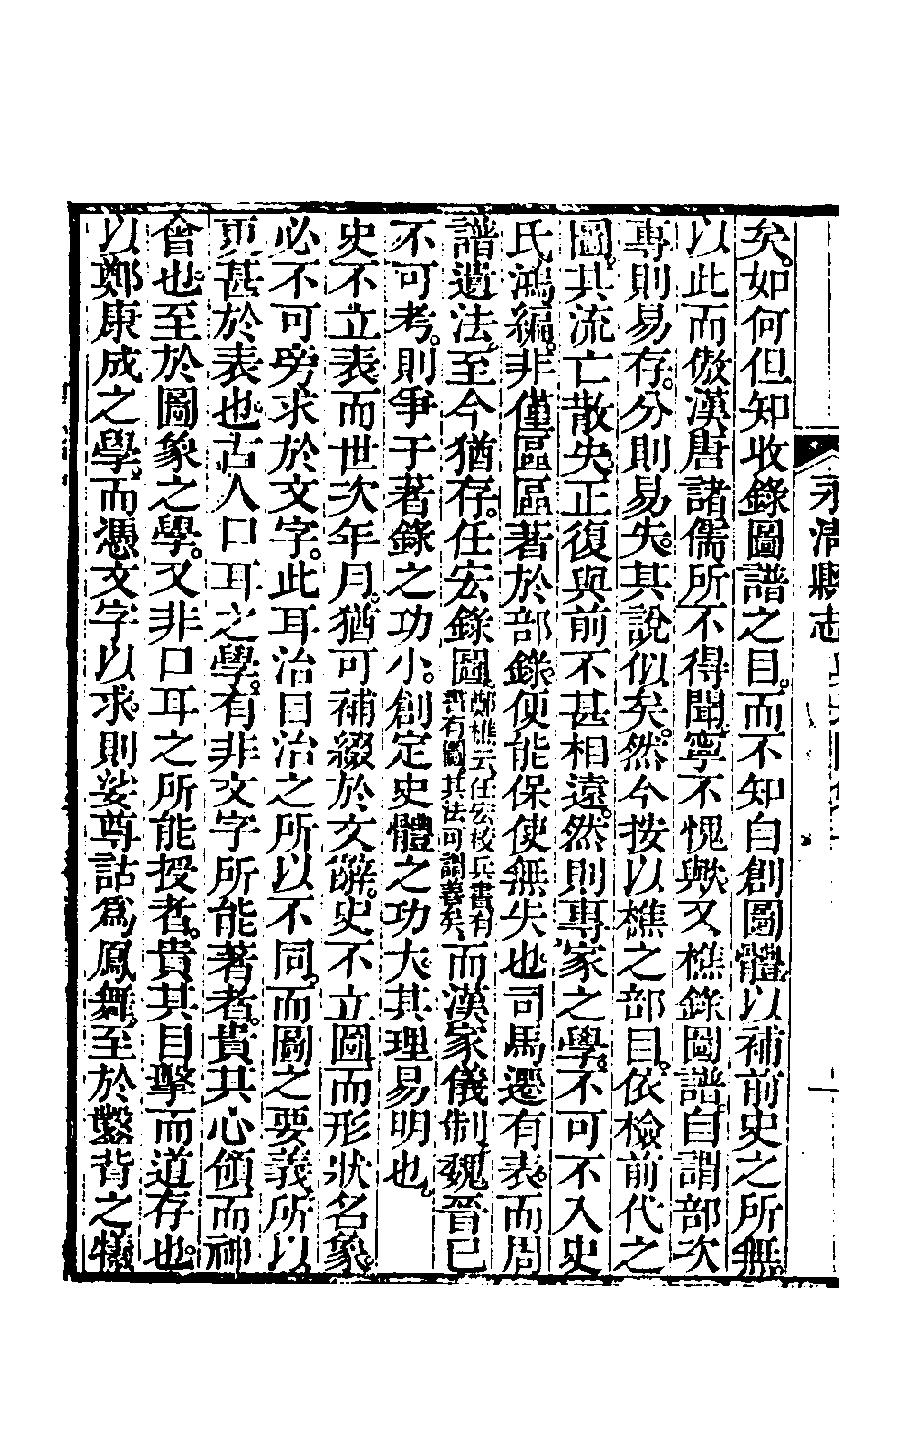 永清縣志
矣。如何但知收錄圖譜之目。而不知自創圖體。以補前史之所無。
以此而倣漢唐諸儒所不得聞。寧不愧歟。又樵錄圖譜。自謂部次
專則易存。分則易失。其說似矣。然今按以樵之部目。依檢前代之
圖。其流亡散失。正復與前不甚相遠。然則專家之學。不可不入史
氏鴻編。非僅區區著於部錄。便能保使無失也。司馬遷有表。而周
譜遺法。至今猶存。任宏錄圖。鄭樵云。任宏校兵書。有書有圖。其法可謂善矣。而漢家儀制。魏晉已
不可考。則爭于著錄之功小。創定史體之功大。其理易明也。
史不立表。而世次年月。猶可補綴於文辭。史不立圖。而形狀名象。
必不可旁求於文字。此耳治目治之所以不同。而圖之要義。所以
更甚於表也。古人口耳之學。有非文字所能著者。貴其心領而神
會也。至於圖象之學。又非口耳之所能授者。貴其目擊而道存也。
以鄭康成之學。而憑文字以求。則娑尊詁爲鳳舞。至於鑿背之犧